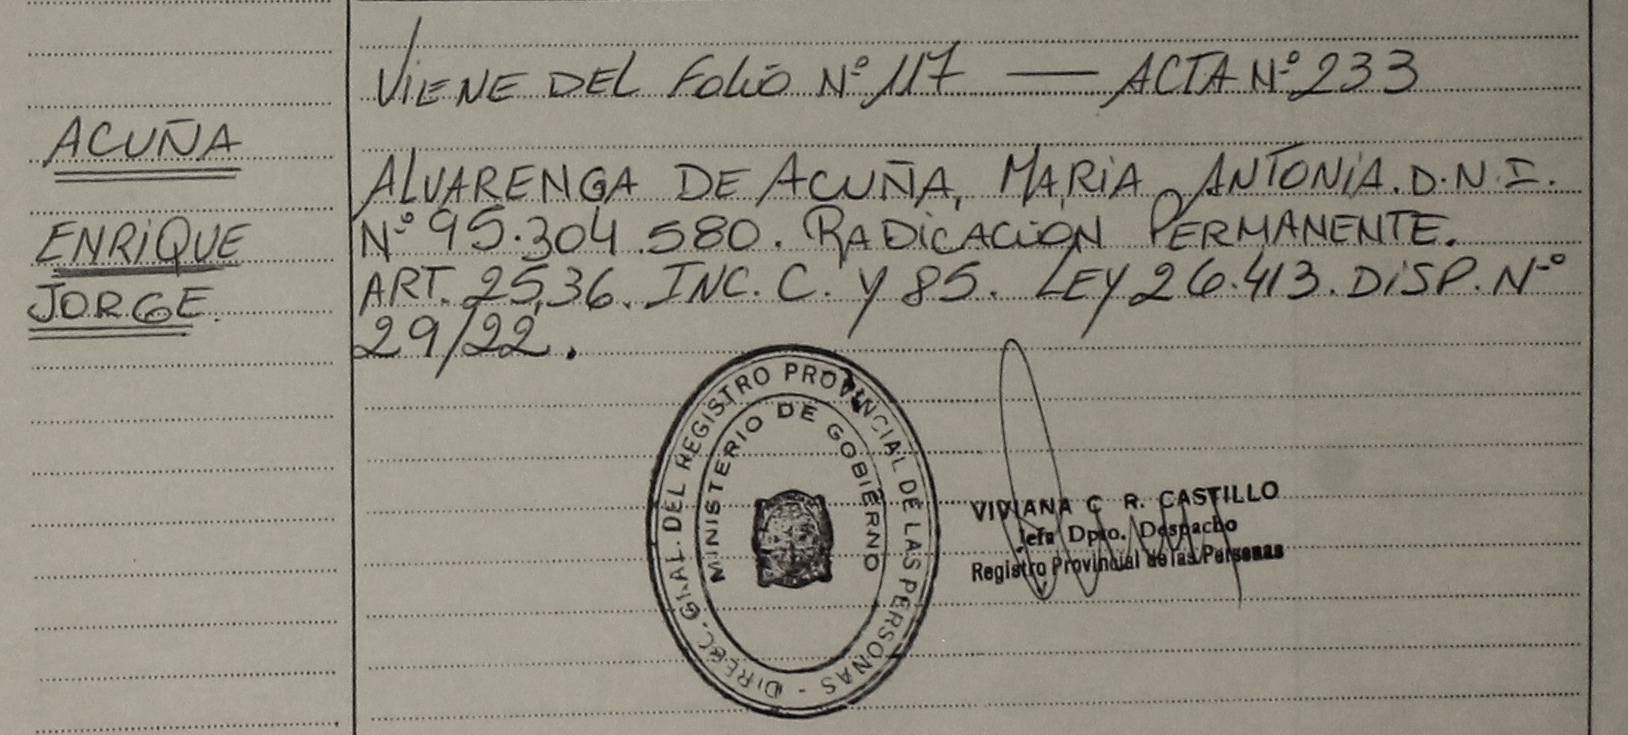 VIENE DEL FOLIO Nº 117 — ACTA Nº 233
ACUÑA
ENRIQUE
JORGE.
ALVARENGA DE ACUÑA, MARIA ANTONIA. D.N.I.
Nº 95.304.580. RADICACIÓN PERMANENTE.
ART. 25,36. INC. C. Y 85. LEY 26.413. DISP. Nº
29/22.
DIREC. GRAL. DEL REGISTRO PROVINCIAL DE LAS PERSONAS -
MINISTERIO DE GOBIERNO
VIVIANA C R. CASTILLO
Jefa Dpto. Despacho
Registro Provincial de las Personas